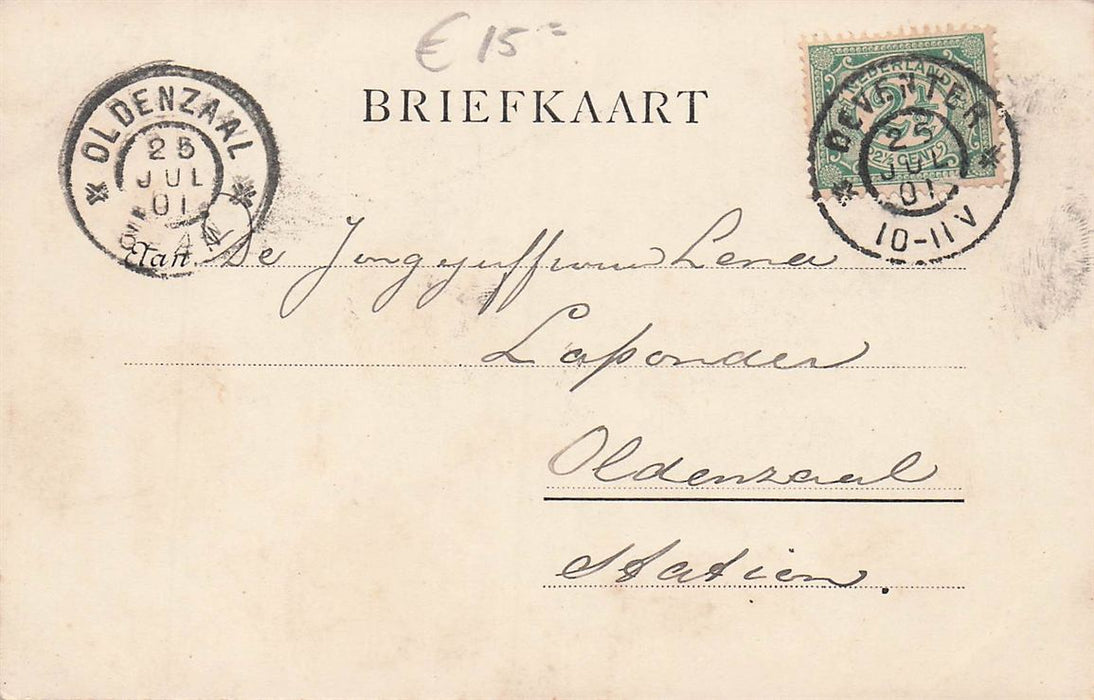 € 15=
BRIEFKAART
OLDENZAAL
25
JUL
01
NEDERLAND
2½
2½ CENT
DEVENTER
25
JUL
01
10-11V
Aan De Jongejuffrouw Lena
Laponder
Oldenzaal
Station.